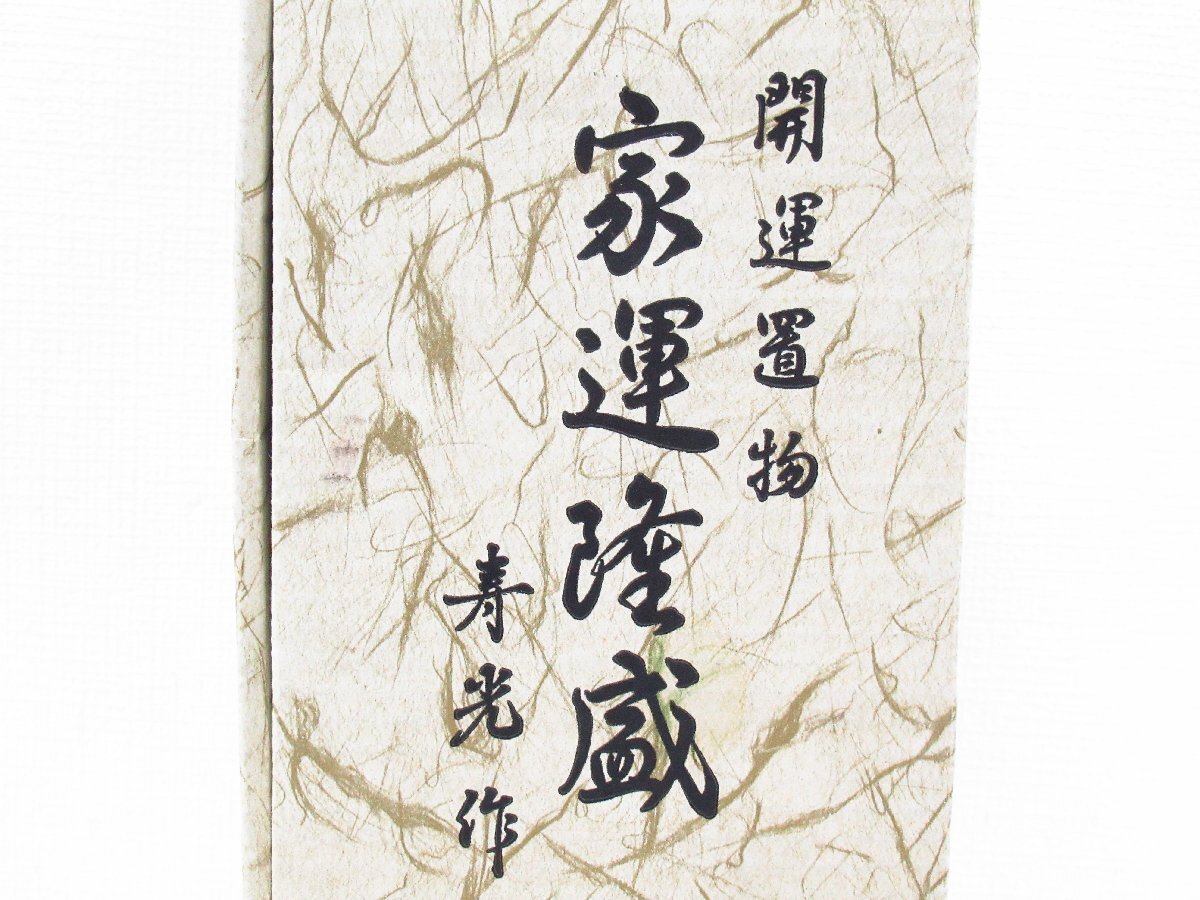 開運置物
家運隆盛
寿光作